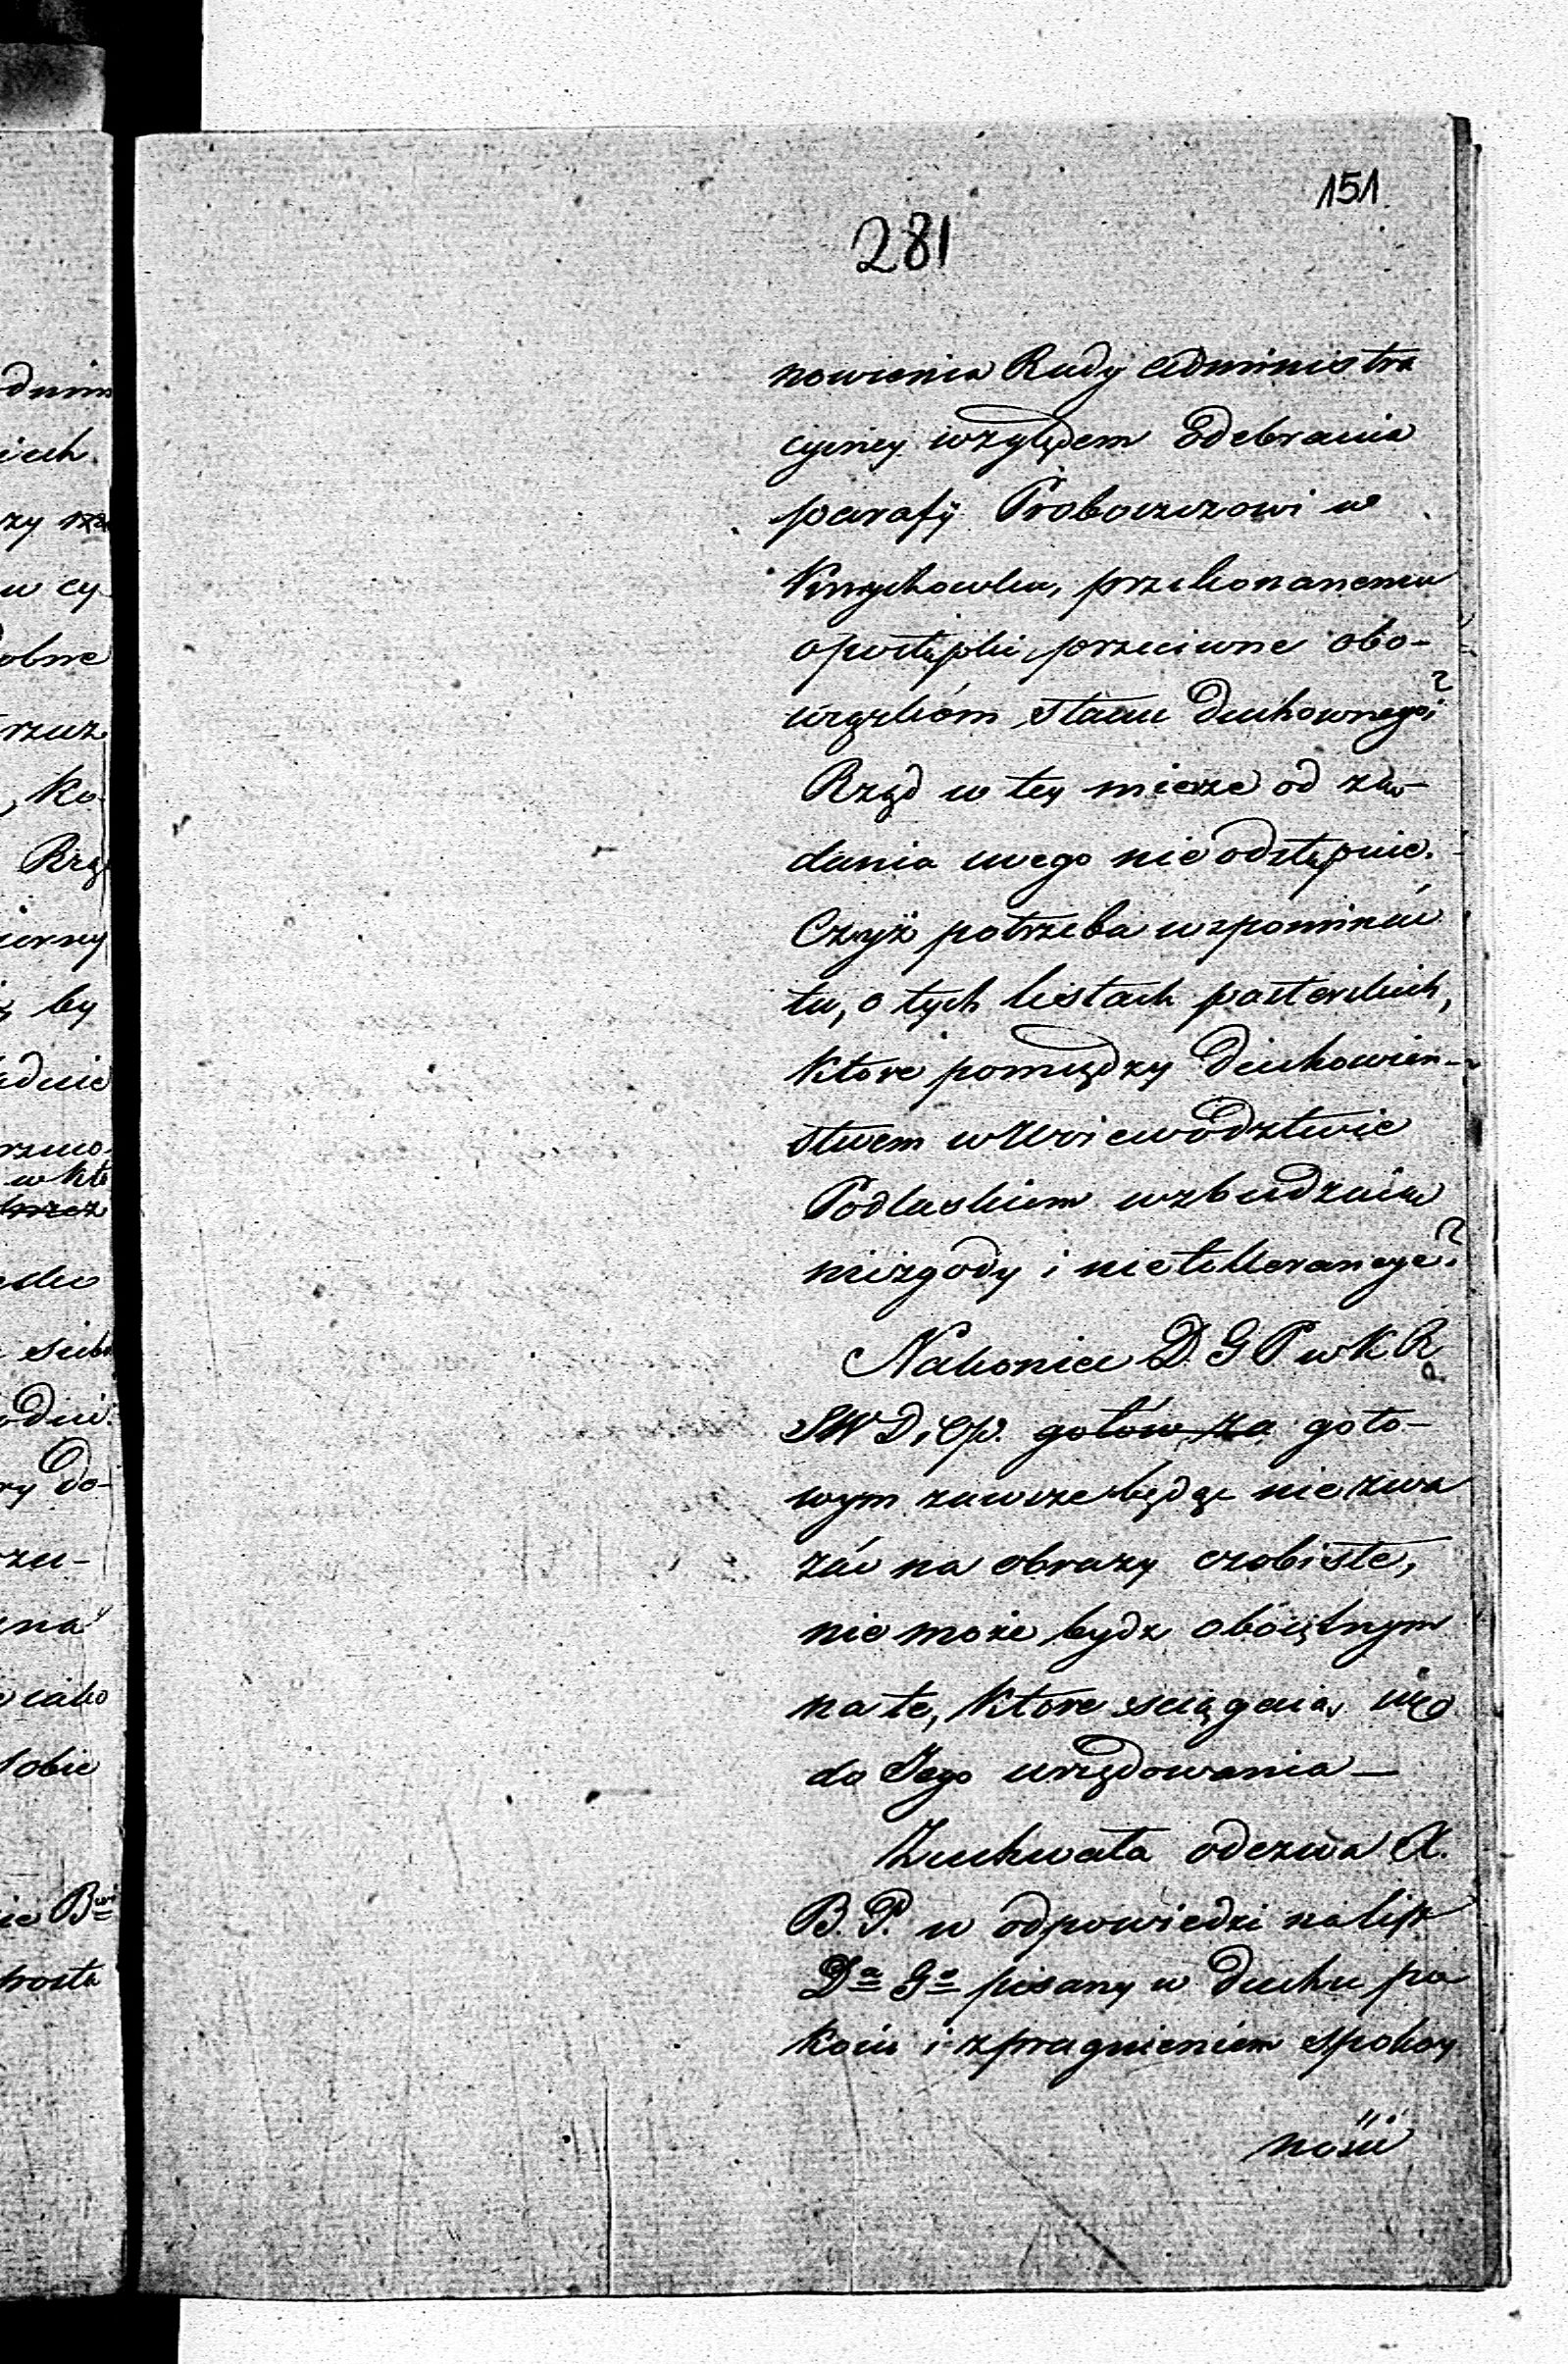 151
281
nowienia Rady Administra
cyiney względem Odebrania
parafij Proboszczowi w
Krzychowku, przekonanemu
o postępki przeciwne obo-
wiązkóm stanu Duchownego?
Rząd w tey mierze od żą-
dania swego nie odstąpuie.
Czyż potrzeba wspominać
tu, o tych listach pasterskich,
które pomiędzy Duchowień-
stwem w Woiewództwie
Podlaskiem wzbudzaią
niezgody i nietollerancye?
Nakoniec D. G P w K R
SW D i Op. gotów za goto-
wym zawsze będąc nie zwa
żać na obrazy osobiste,
nie może bydz oboiętnym
na te, które sciągaią się
do Jego urzędowania —
Zuchwała odezwa X.
B. P. w odpowiedzi na list
Da Go pisany w duchu po
koiu i z pragnieniem spokoy
ności
odnim
iich
zy
w cy
obne
rzuz
, Ko-
Rzą
by
w któ
przez
ry do-
zu-
iako
sobie
ie Bwi